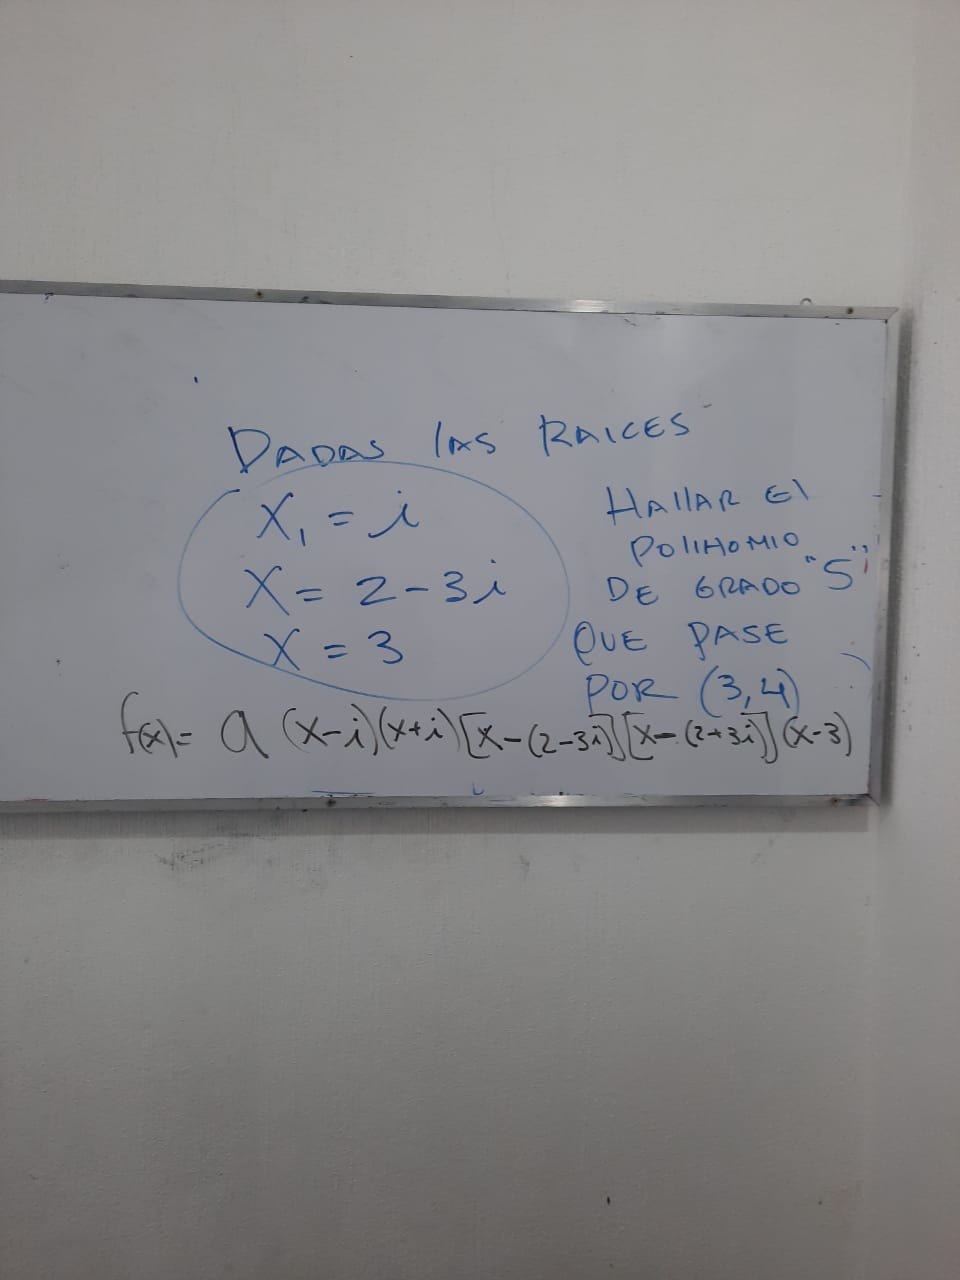 DADAS lAS RAICES
X₁ = i
X = 2-3i
X = 3
HAllAR El
POliHOMIO
DE GRADO "5"
QUE PASE
POR (3,4)
f(x)= a (x-i)(x+i)[x-(2-3i)][x-(2+3i)](x-3)